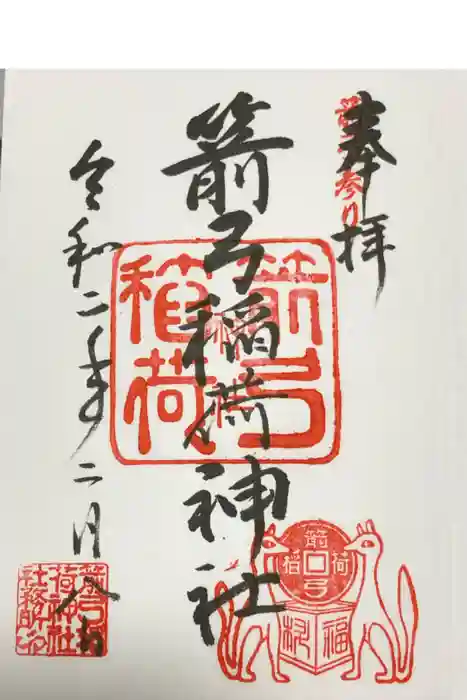 奉拝
箭弓稲荷神社
令和二年二月八日
箭弓
稲荷
箭弓稲
荷神社
社務所印
箭弓稲荷
福